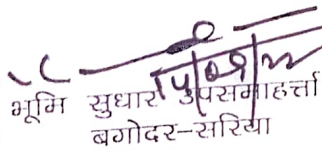 भूमि सुधार उपसमाहर्त्ता
बगोदर-सरिया